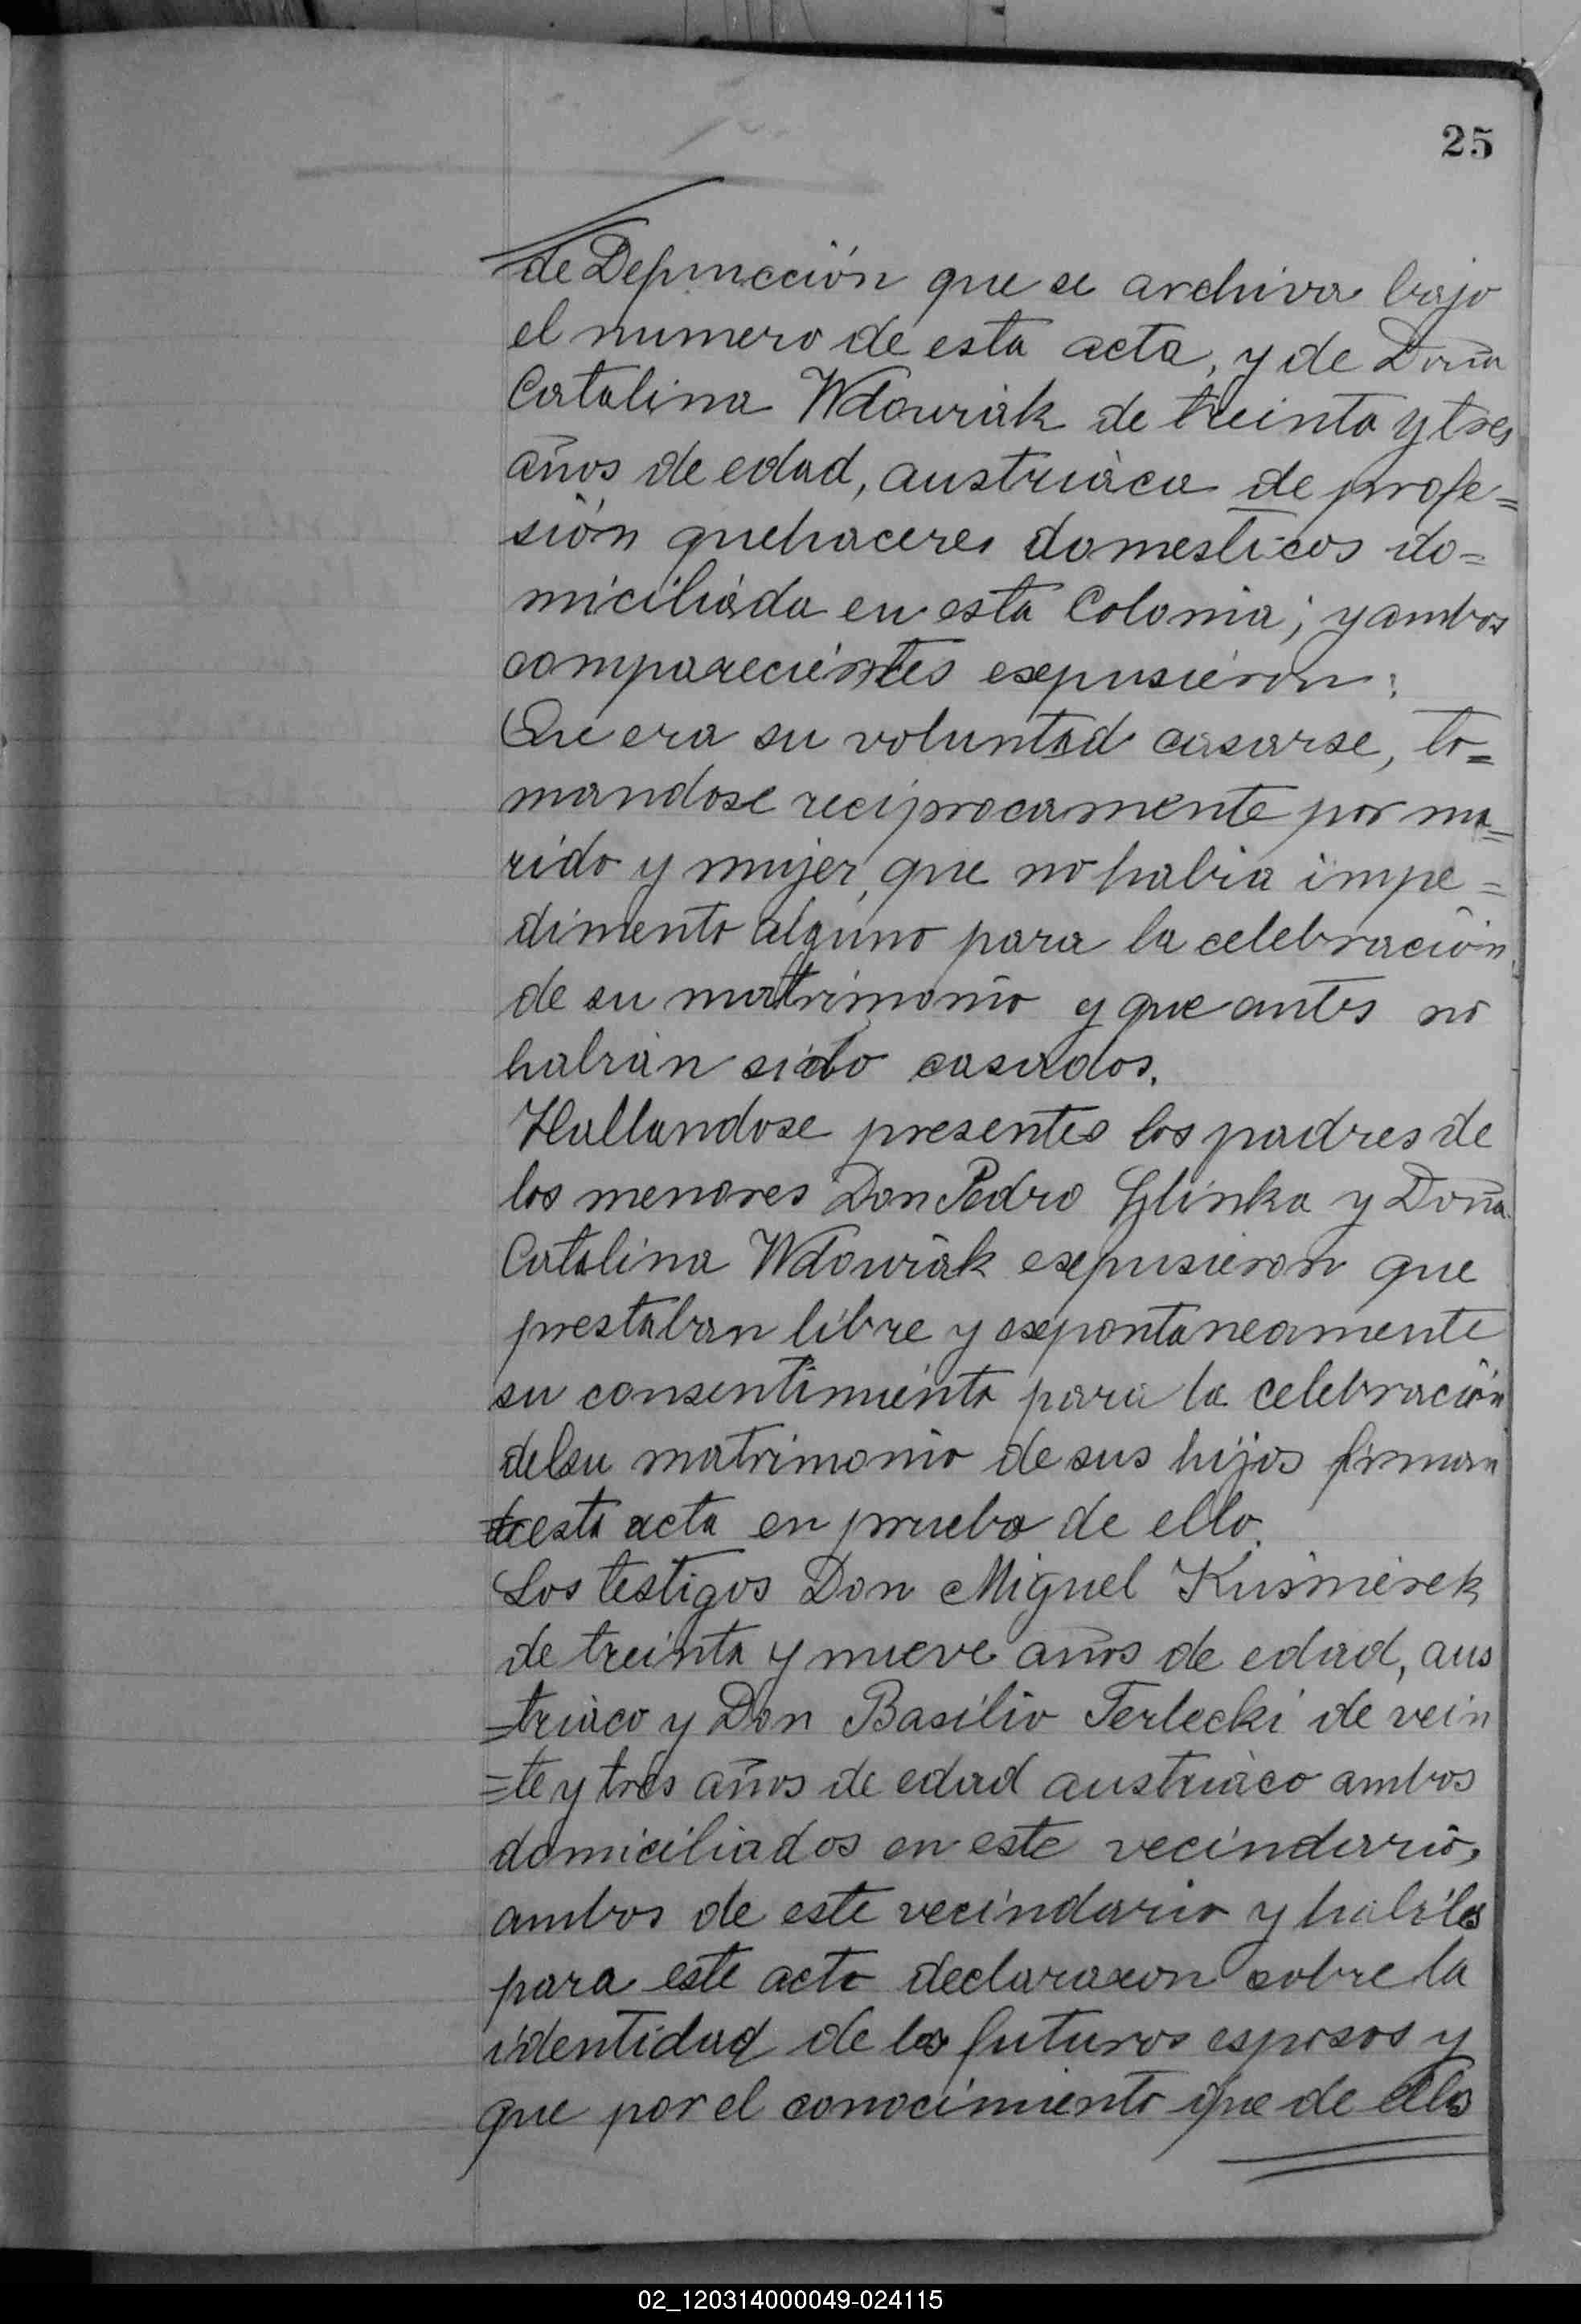 25
de Defuncción que se archiva bajo
el numero de esta acta, y de Doña
Catalina Wdowiak de treinta y tres
años de edad, austriàca de profe=
sión quehaceres domesticos do=
miciliada en esta Colonia; y ambos
comparecientes exepusieron:
Que era su voluntad casarse, to=
mandose reciprocamente por ma=
rido y mujer, que no habia impe=
dimento alguno para la celebración
de su matrimonio y que antes no
habian sido casados.
Hallandose presentes los padres de
los menores Don Pedro Glinka y Doña
Catalina Wdowiak exepusieron que
prestaban libre y exepontaneamente
su consentimiento para la celebración
del su matrimonio de sus hijos firman
esta acta en prueba de ello.
Los testigos Don Miguel Kusmierek
de treinta y nueve años de edad, aus
=triaco y Don Basilio Terlecki de vein
=te y tres años de edad austriàco ambos
domiciliados en este vecindario,
ambos de este vecindario y habiles
para este acto declararon sobre la
identidad de los futuros esposos y
que por el conocimiento que de ellos
02_120314000049-024115